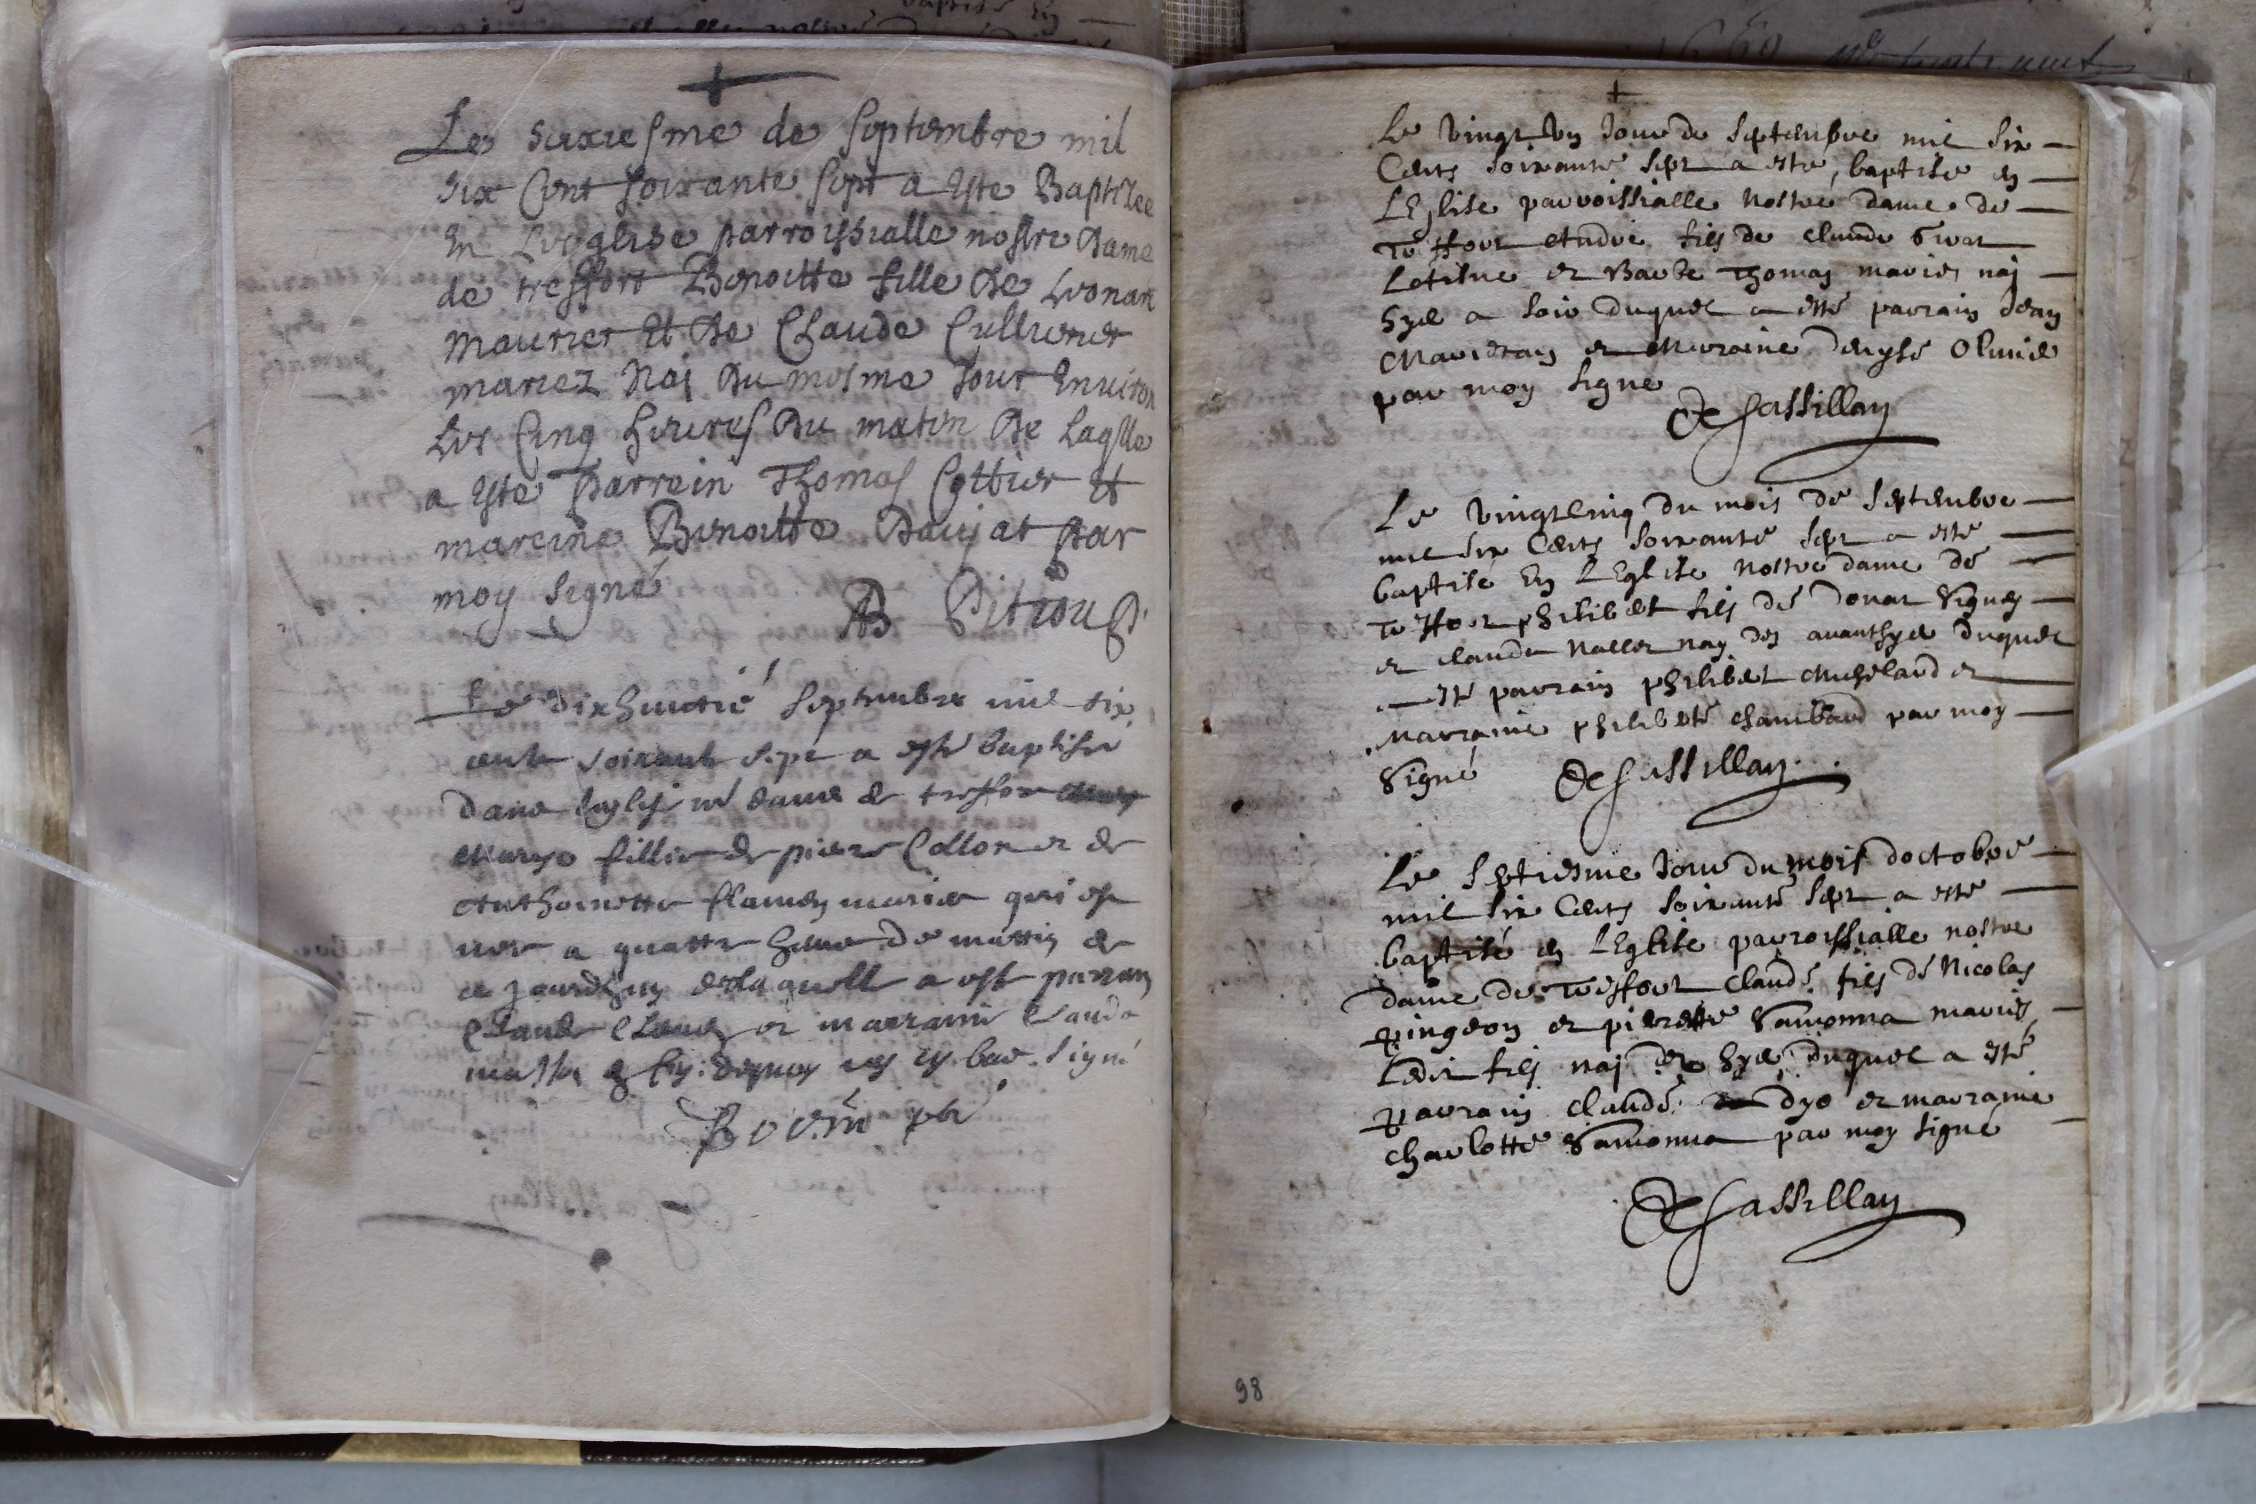 Le sixiesme de septembre mil
six Cent soixante sept a este Baptizee
en Leeglise parroissialle nostre dame
de treffort Benoitte fille de Leonar
maurier et de Claude Cullierier
mariez Nai du mesme Jour Environ
Les Cinq heures du matin de Laqlle
a este Parrein Thomas Cottier et
mareine Benoitte Daujat Par
moy signé
Le dixhuictie septembre mil six
cents soixante sept a esté baptisé
dans leglise nre dame de treffor
Marye fillie de piere Collon et de
Anthoinette flamen mariés qui est
nee a quattre heure de mattin de
ce jourdhuy de laquelle a esté parrain
Claude et marraine Claude
signé
Le vingt un Jour de septembre mil six
Cents soixante sept a esté baptisé en
LEglise parroissialle nostre dame de
Treffort andré fils de claude
et Barbe Thomas mariés naj
hyer a soir duquel a esté parrain Jean
et Marraine denyse Olivie
par moy signe
De Sassillay
Le vingt cinq du mois de septembre
mil six Cents soixante sept a esté
baptisé En LEglise nostre dame de
Treffort philibert fils de Donat
et claude nay des avanthyer duquel
esté parrain philibert Michelard et
Marraine philiberte chambard par moy
signé De Sassillay
Le septiesme Jour du mois doctobre
mil six Cents soixante sept a esté
baptisé en LEglise parroissialle nostre
dame de Treffort claude fils de Nicolas
pingeon et pierrette Vamonna mariés
Ledit fils naj hyer duquel a esté
parrain claude dyo et marraine
charlotte Vamonna par moy signé
De Sassillay
98